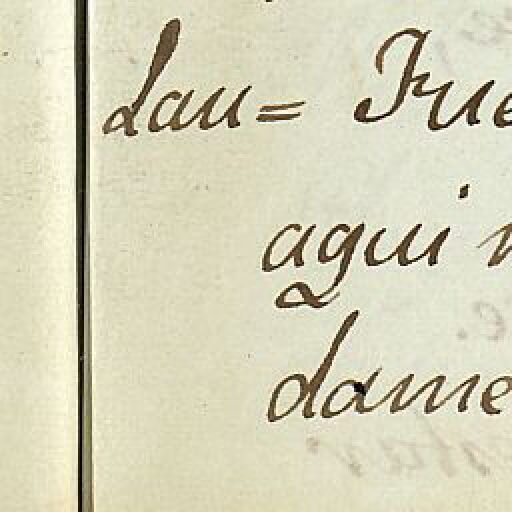 Lau= Fue
aqui
dame